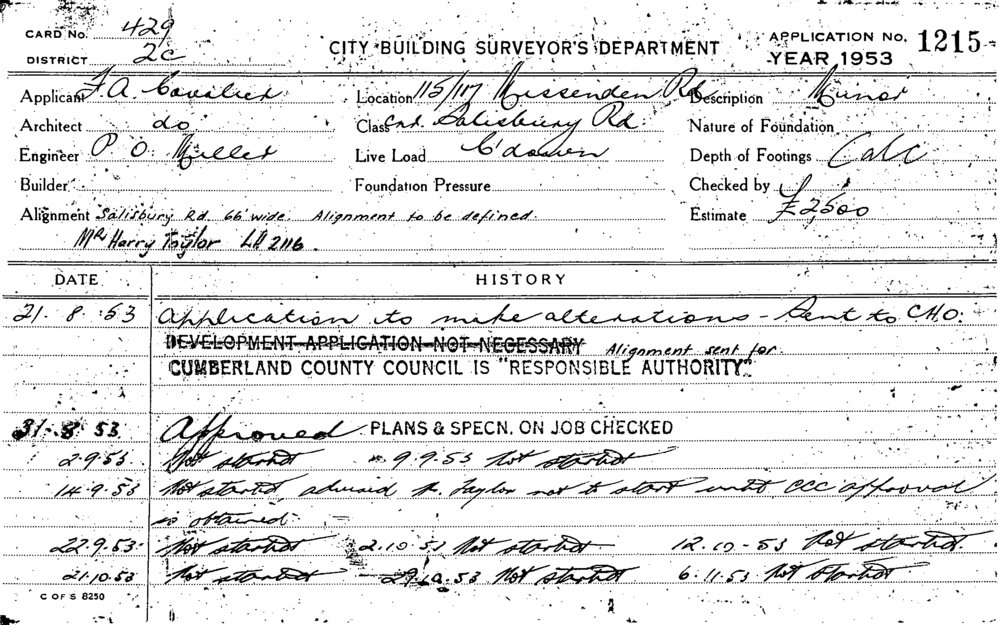 CARD No. 429
DISTRICT 2C
CITY BUILDING SURVEYOR'S DEPARTMENT
APPLICATION No. 1215
YEAR 1953
Applicant F. A. Cavalier Location 115/117 Missenden Rd Description Minor
Architect do Class Cnr. Salisbury Rd. Nature of Foundation
Engineer P. O. Miller Live Load C'down Depth of Footings Calc
Builder Foundation Pressure Checked by
Alignment Salisbury Rd. 66' wide. Alignment to be defined. Estimate £2500
Mr Harry Taylor LA 2116.
DATE HISTORY
21. 8. 53 Application to make alterations - Sent to C.H.O.
DEVELOPMENT APPLICATION NOT NECESSARY Alignment sent for.
CUMBERLAND COUNTY COUNCIL IS "RESPONSIBLE AUTHORITY"
31. 8. 53 Approved PLANS & SPECN. ON JOB CHECKED
2.9.53. Not started 9.9.53 Not started
14.9.53 Not started, advised Mr. Taylor not to start until CCC approval
is obtained.
22.9.53. Not started 2.10.53 Not started. 12.10.53 Not started.
21.10.53 Not started 29.10.53 Not started 6.11.53 Not started.
C OF S 8250